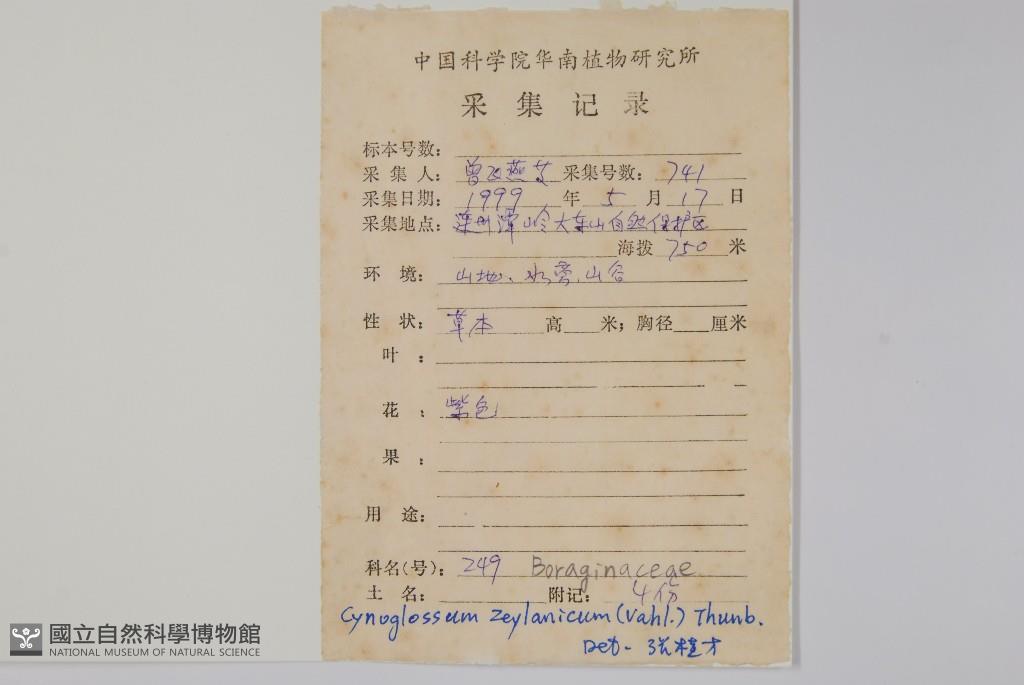 中国科学院华南植物研究所
采集记录
标本号数:
采集人: 曾飞燕等 采集号数: 741
采集日期: 1999 年 5 月 17 日
采集地点: 连州潭岭大东山自然保护区
海拨 750 米
环境: 山地、水旁、山谷
性状: 草本 高 米; 胸径 厘米
叶:
花: 紫色
果:
用途:
科名(号): 249 Boraginaceae
土名: 附记: 4份
Cynoglossum zeylanicum (Vahl.) Thunb.
Det. 张桂才
國立自然科學博物館
NATIONAL MUSEUM OF NATURAL SCIENCE